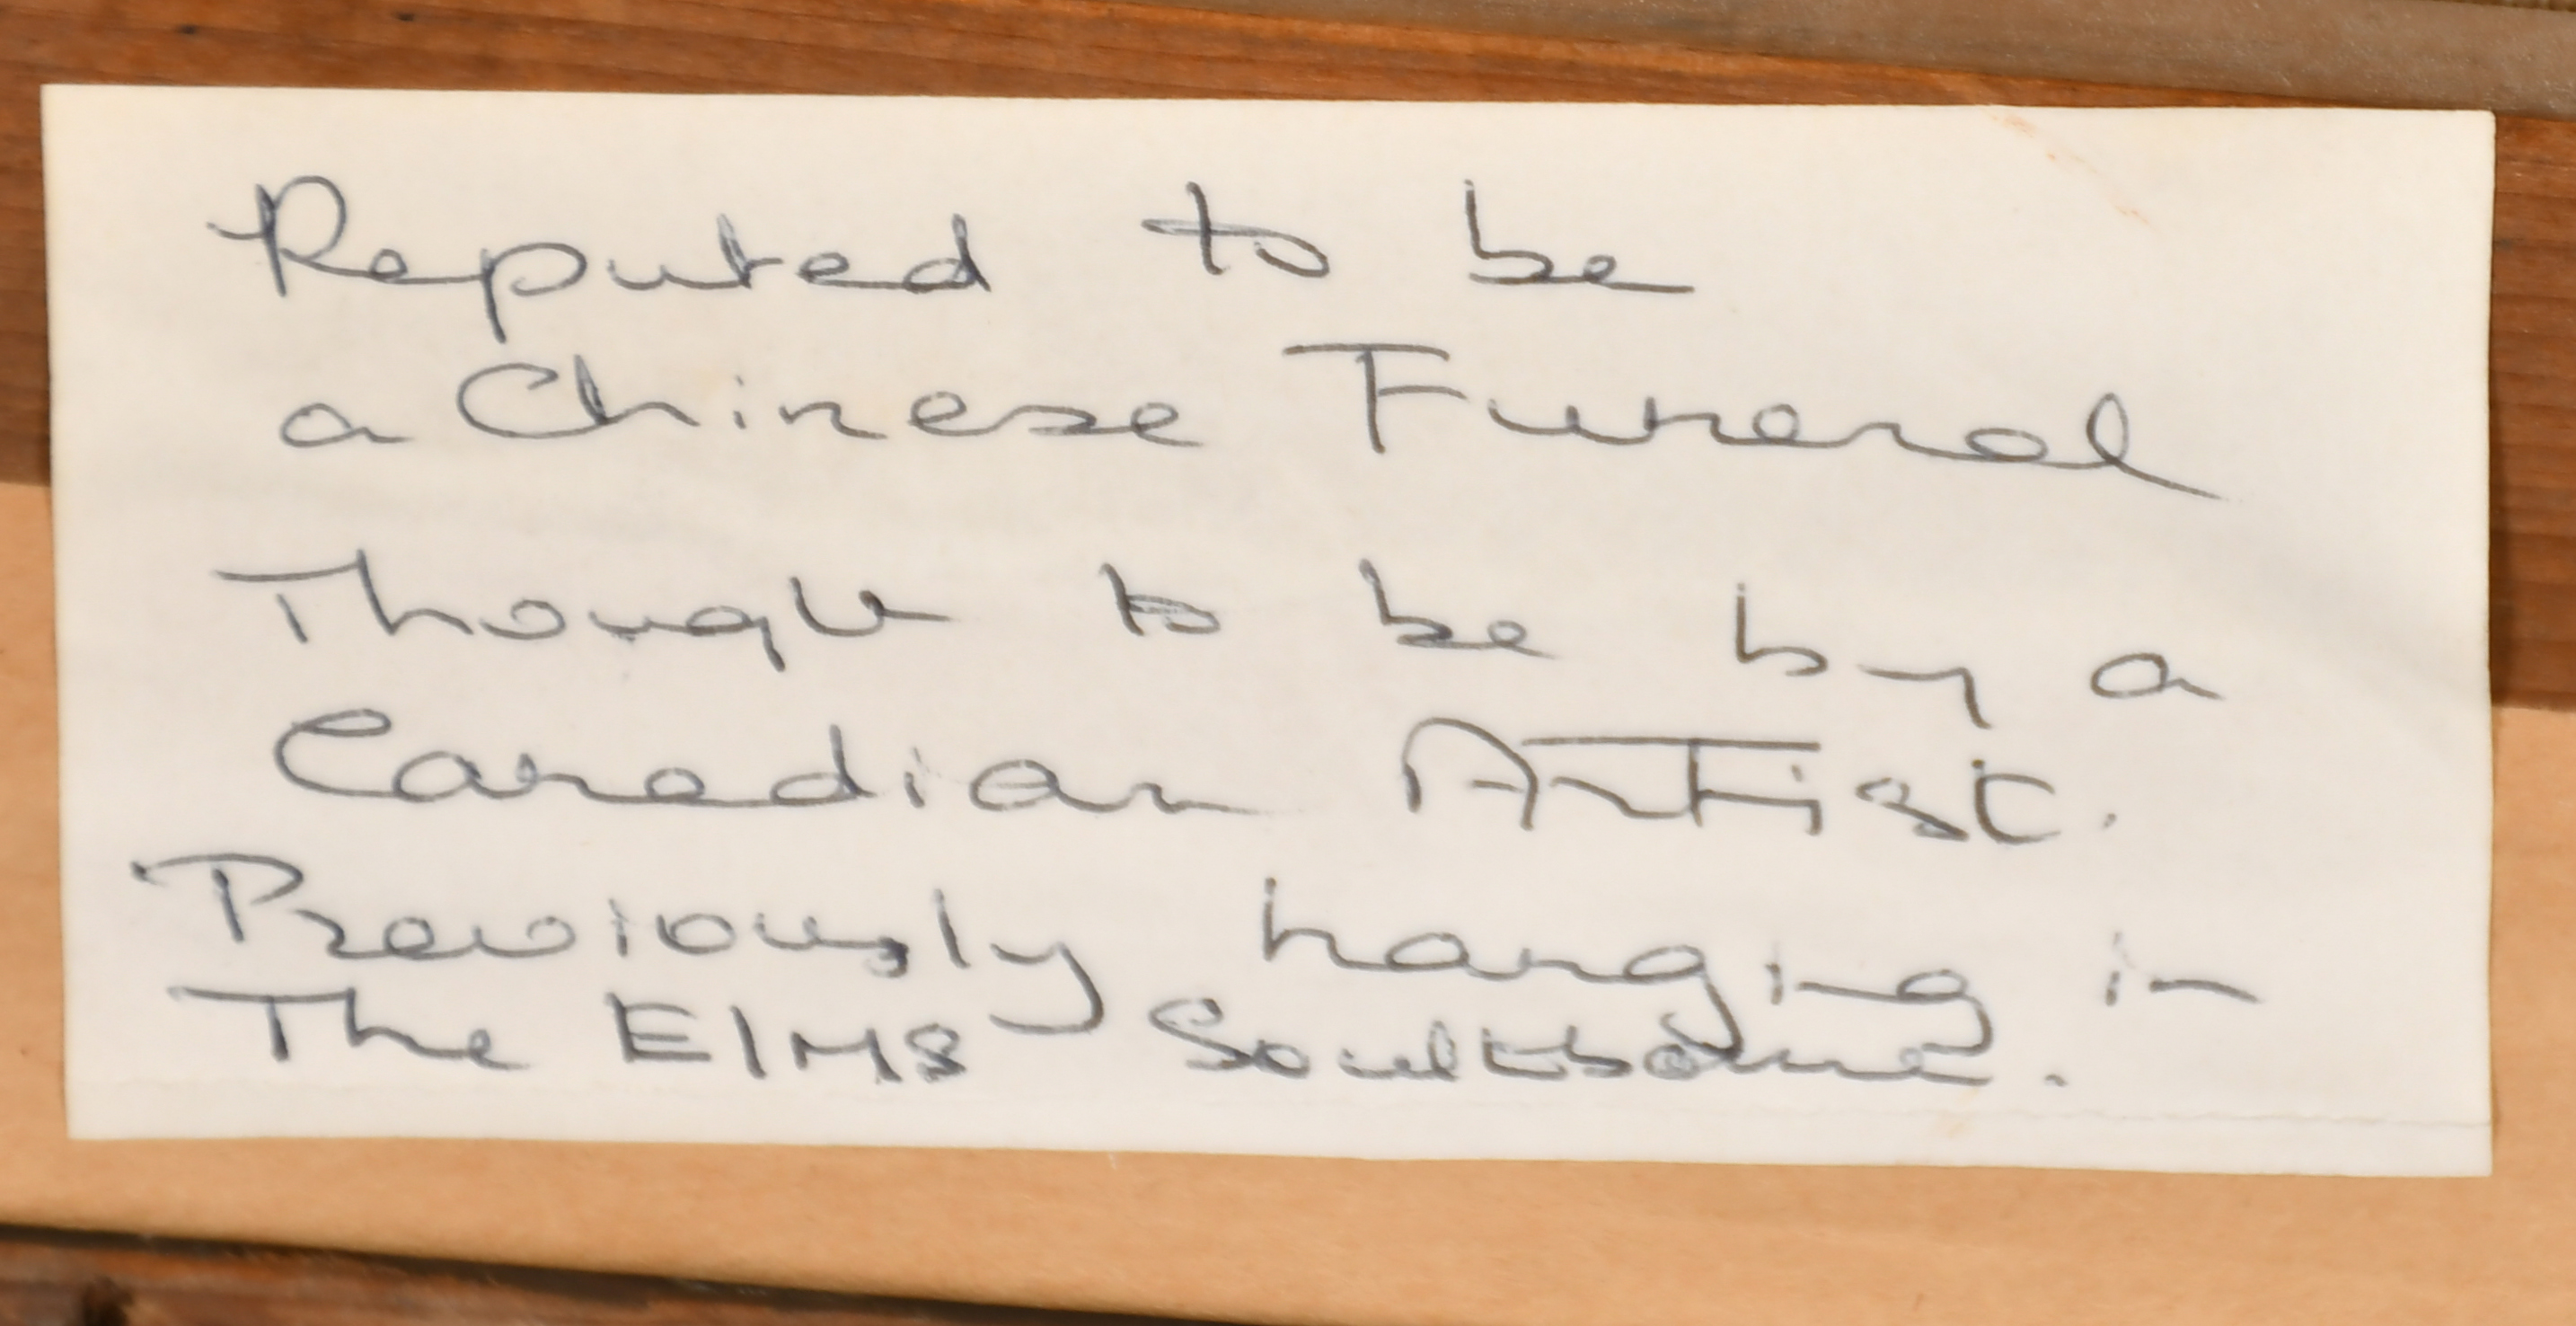 Reputed to be
a Chinese Funeral
Though to be by a
Canadian Artist.
Previously hanging in
The Elms Southbourne.